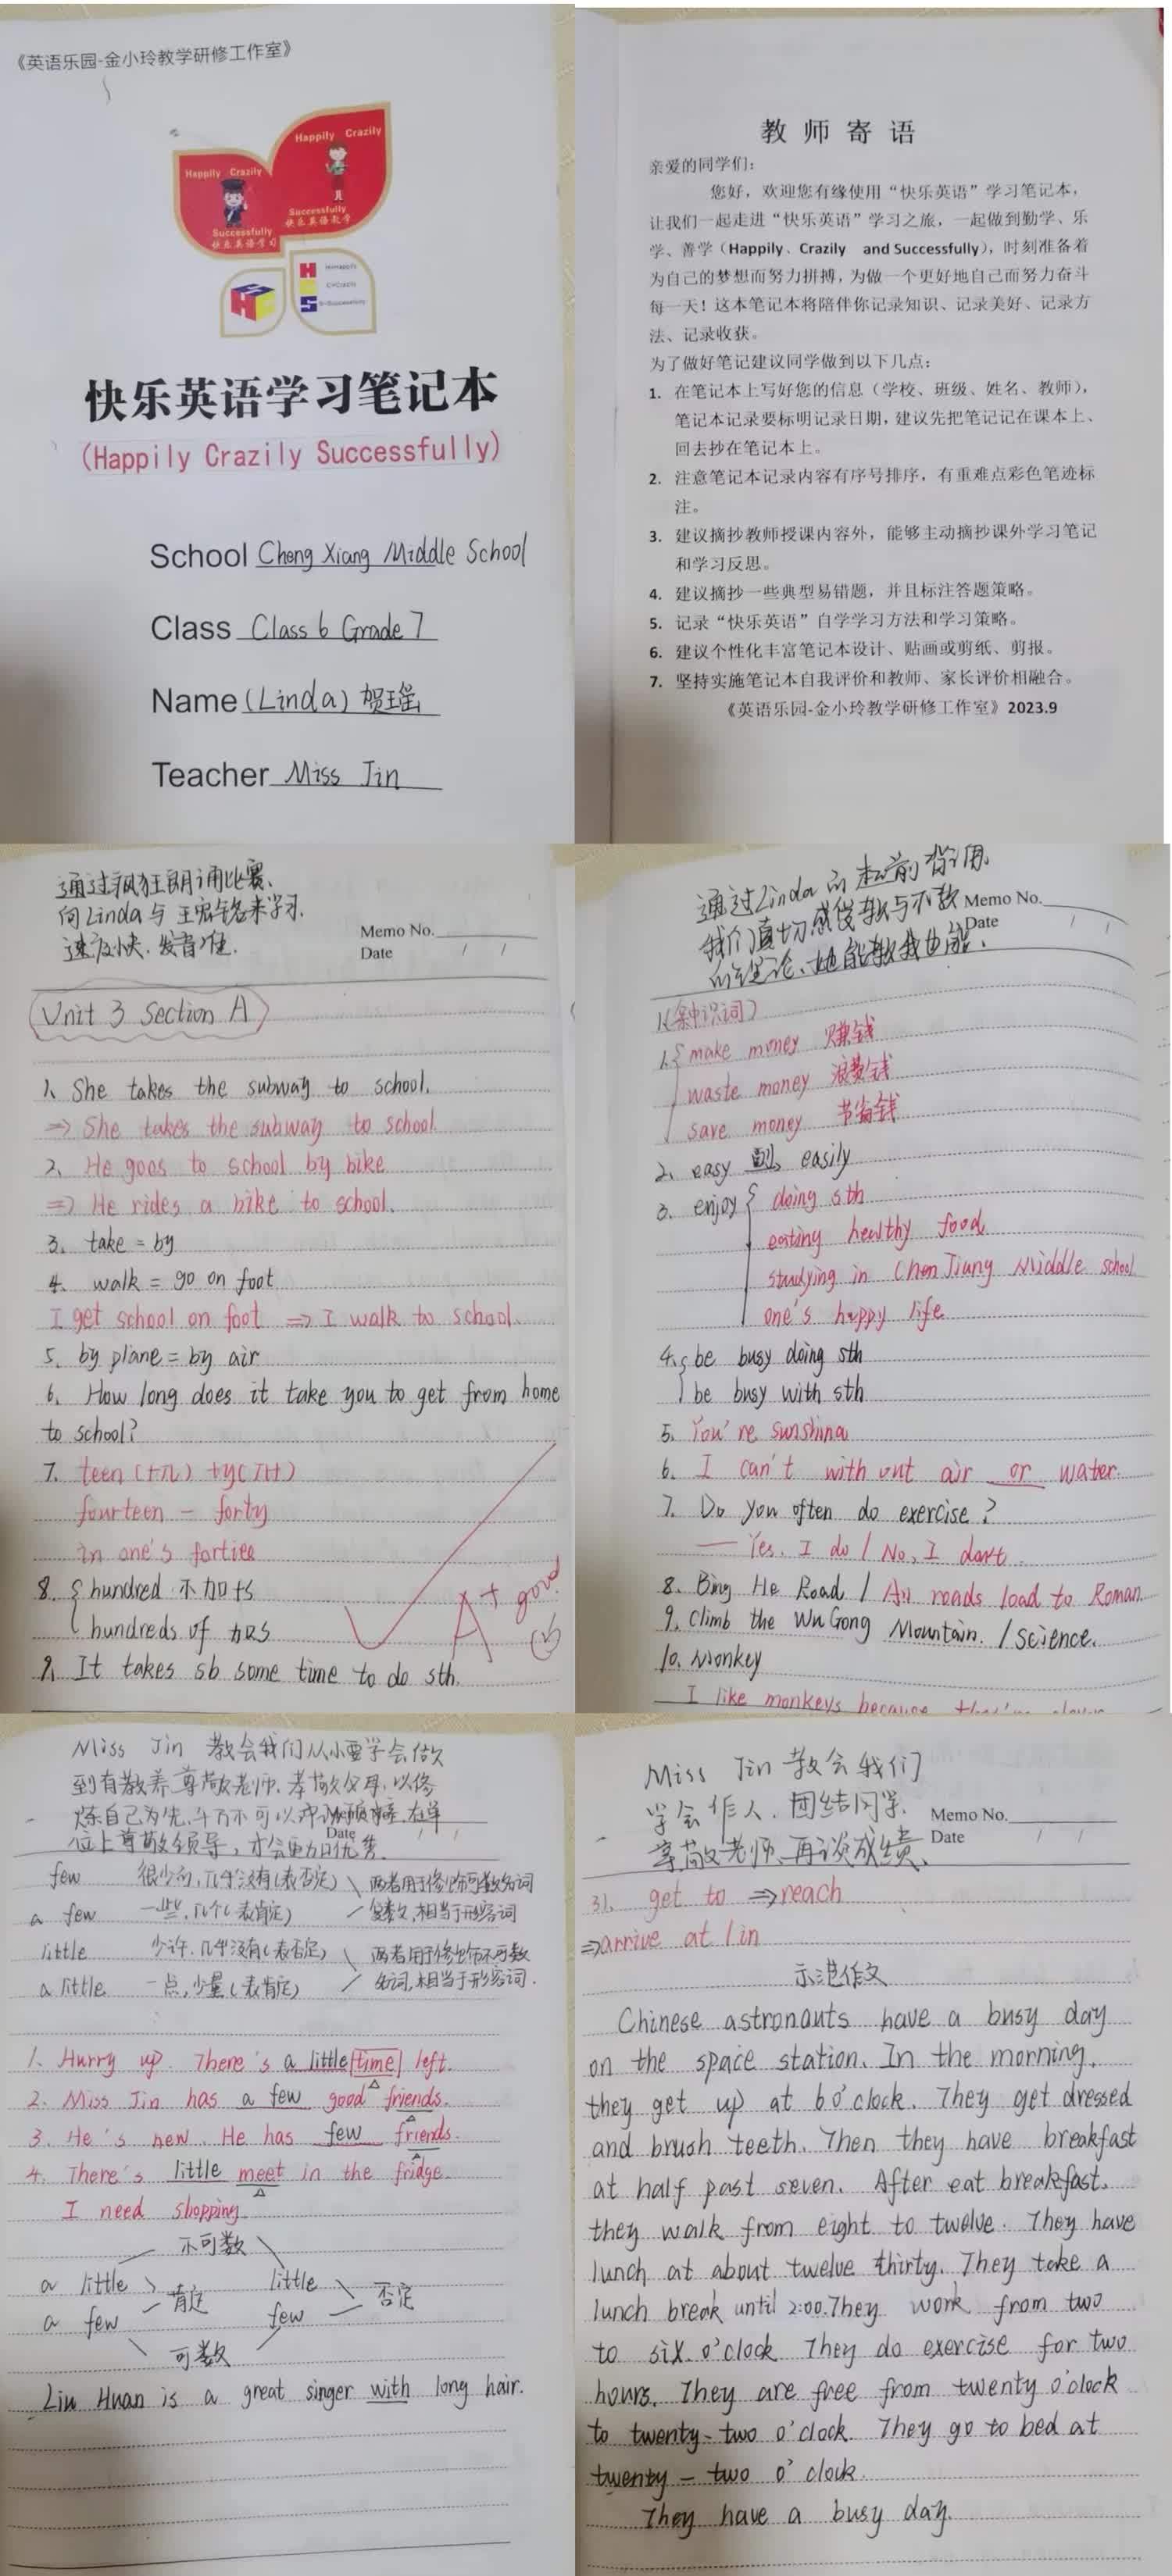 《英语乐园-金小玲教学研修工作室》
Happily Crazily
Happily Crazily
Successfully
快乐英语教学
Successfully
快乐英语学习
H
C
S
HC
快乐英语学习笔记本
(Happily Crazily Successfully)
School Cheng Xiang Middle School
Class Class 6 Grade 7
Name (Linda) 贺瑶
Teacher Miss Jin
教 师 寄 语
亲爱的同学们：
您好，欢迎您有缘使用“快乐英语”学习笔记本，
让我们一起走进“快乐英语”学习之旅，一起做到勤学、乐
学、善学（Happily、Crazily and Successfully），时刻准备着
为自己的梦想而努力拼搏，为做一个更好地自己而努力奋斗
每一天！这本笔记本将陪伴你记录知识、记录美好、记录方
法、记录收获。
为了做好笔记建议同学做到以下几点：
1. 在笔记本上写好您的信息（学校、班级、姓名、教师），
笔记本记录要标明记录日期，建议先把笔记记在课本上、
回去抄在笔记本上。
2. 注意笔记本记录内容有序号排序，有重难点彩色笔迹标
注。
3. 建议摘抄教师授课内容外，能够主动摘抄课外学习笔记
和学习反思。
4. 建议摘抄一些典型易错题，并且标注答题策略。
5. 记录“快乐英语”自学学习方法和学习策略。
6. 建议个性化丰富笔记本设计、贴画或剪纸、剪报。
7. 坚持实施笔记本自我评价和教师、家长评价相融合。
《英语乐园-金小玲教学研修工作室》2023.9
通过疯狂朗诵比赛、
向Linda与王 来学习.
速度快．发音准．
Memo No.
Date / /
Unit 3 Section A
1、She takes the subway to school.
=> She takes the subway to school.
2、He goes to school by bike
=> He rides a bike to school.
3、take = by
4、walk = go on foot
I get school on foot => I walk to school.
5、by plane = by air
6、How long does it take you to get from home
to school?
7、teen (十几) ty(几十)
fourteen - forty
in one's forties
8、{ hundred 不加s
hundreds of 加s
9、It takes sb some time to do sth.
A+ good
通过Linda的 前背诵．
我们真切感受教与不教
的理论、她能教我也能．
Memo No.
Date / /
1、{ make money 赚钱
waste money 浪费钱
save money 节省钱
2、easy 副 easily
3、enjoy { doing sth
eating healthy food
studying in Chen Jiang Middle school
one's happy life
4、{ be busy doing sth
be busy with sth
5、You're sunshine
6、I can't with out air or water.
7、Do you often do exercise?
— Yes, I do / No, I don't.
8、Bing He Road / All roads load to Roman.
9、Climb the Wu Gong Mountain. / Science.
10、Monkey
I like monkeys because they're clever
Miss Jin 教会我们从小要学会做
到有教养 尊敬老师、孝敬父母，以修
炼自己为先，千万不可以 在单
位上尊敬领导，才会更加优秀．
Date / /
few 很少的，几乎没有(表否定) \ 两者用于修饰可数名词
a few 一些，几个(表肯定) / 复数，相当于形容词
little 少许，几乎没有(表否定) \ 两者用于修饰不可数
a little 一点，少量(表肯定) / 名词，相当于形容词．
1、Hurry up. There's a little time left.
2、Miss Jin has a few good friends.
3、He's new. He has few friends.
4、There's little meet in the fridge.
I need shopping.
不可数
a little > 肯定 little > 否定
a few few
可数
Liu Huan is a great singer with long hair.
Miss Jin 教会我们
学会作人．团结同学．
尊敬老师、再谈成绩、
Memo No.
Date / /
31、get to => reach
=> arrive at / in
示范作文
Chinese astronauts have a busy day
on the space station. In the morning,
they get up at 6 o'clock. They get dressed
and brush teeth. Then they have breakfast
at half past seven. After eat breakfast,
they walk from eight to twelve. They have
lunch at about twelve thirty. They take a
lunch break until 2:00. They work from two
to six o'clock They do exercise for two
hours. They are free from twenty o'clock
to twenty-two o'clock. They go to bed at
twenty-two o'clock.
They have a busy day.